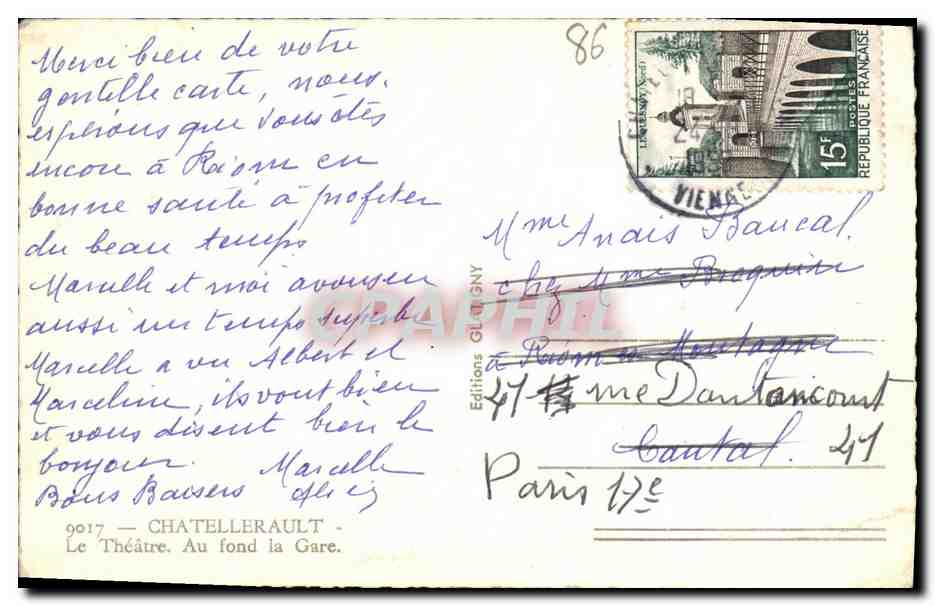 Merci bien de votre
gentille carte, nous.
esperons que vous êtes
encore à Riom en
bonne santé à profiter
du beau temps
Marcelle et moi avons eu
aussi un temps superbe
Marcelle a vu Albert et
Marceline, ils vont bien
et vous disent bien le
bonjour. Marcelle
Bons Baisers
9017 — CHATELLERAULT -
Le Théâtre. Au fond la Gare.
Editions GLOTIGNY
86
LE QUESNOY (Nord)
15F
POSTES
REPUBLIQUE FRANÇAISE
VIENNE
Mme Anais Baucal.
chez Mme Broquin
à Riom es Montagne
41 rue Dautancourt
Cantal. 41
Paris 17e
CPAPHIL